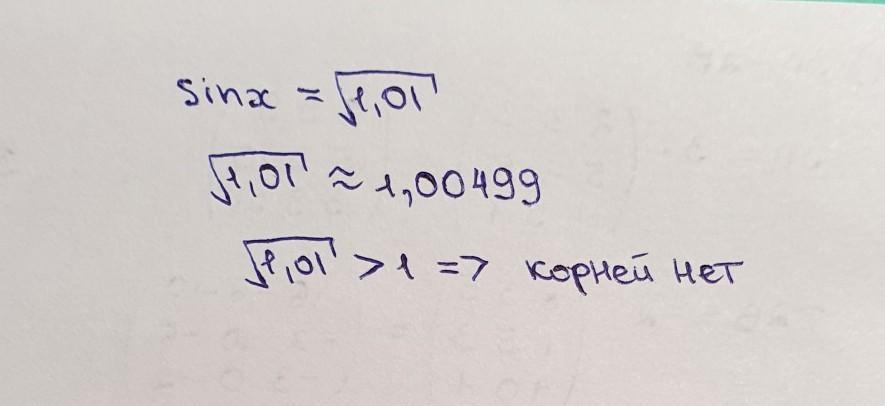 sinx = √1,01
√1,01 ≈ 1,00499
√1,01 > 1 => корней нет